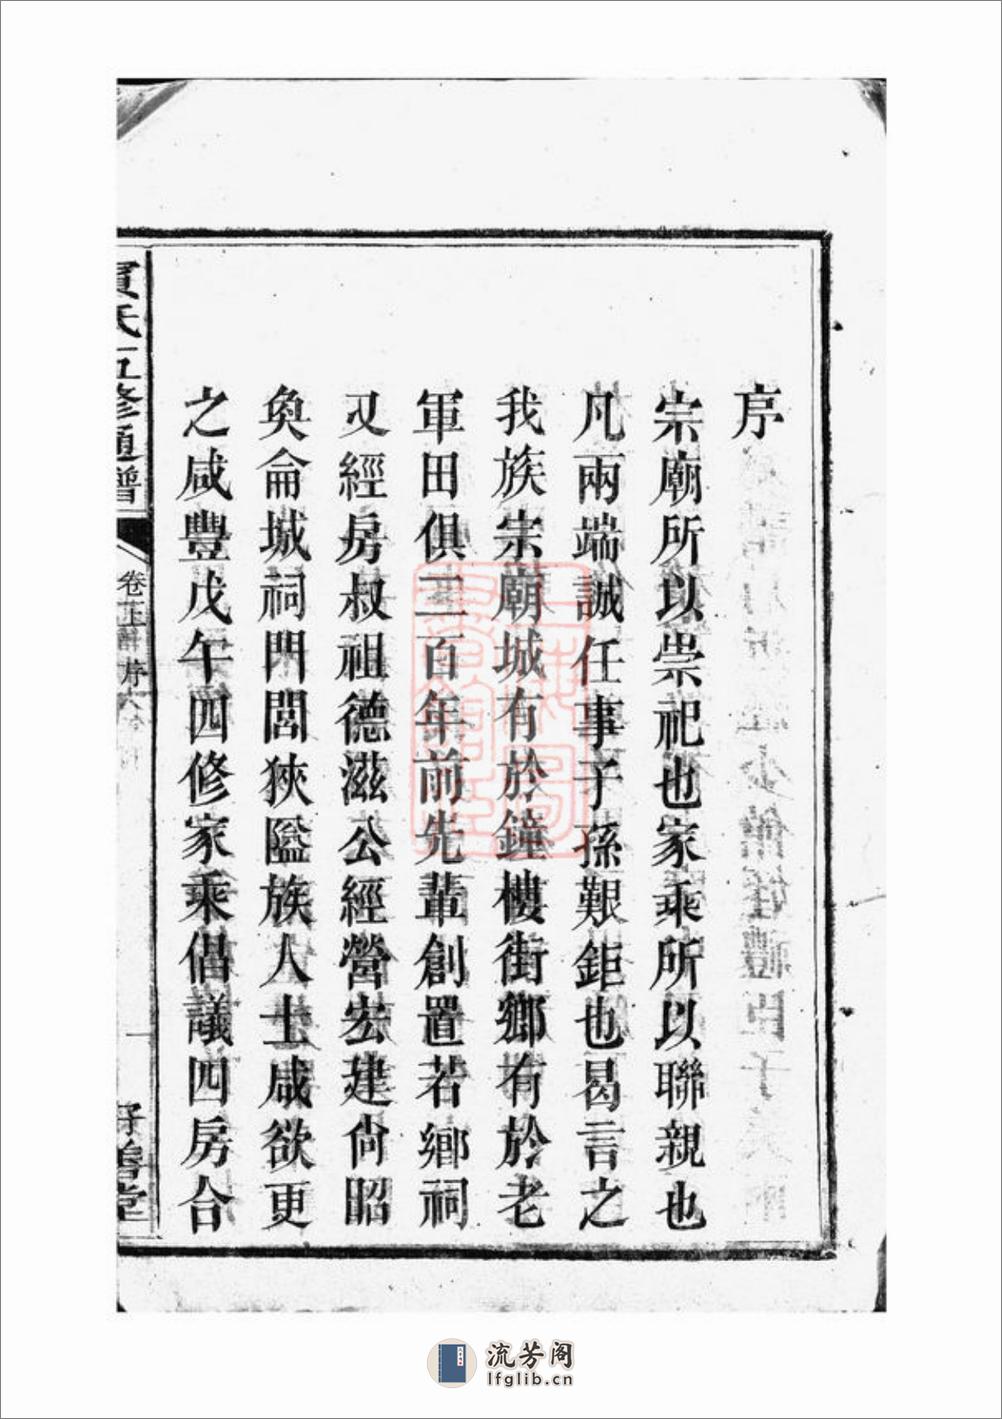 序
宗廟所以崇祀也家乘所以聯親也
凡兩端誠任事子孫艱鉅也曷言之
我族宗廟城有於鐘樓街鄉有於老
軍田俱三百年前先輩創置若鄉祠
又經房叔祖德滋公經營宏建尙昭
奐侖城祠門閭狹隘族人士咸欲更
之咸豐戊午四修家乘倡議四房合
氏五修通譜
卷上
序
好善堂
流芳阁
lfglib.cn